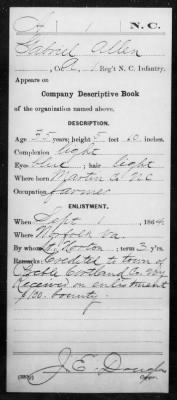 A | 1 | N.C.
Gabriel Allen
, Co. A, 1 Reg't N. C. Infantry.
Appears on
Company Descriptive Book
of the organization named above.
DESCRIPTION.
Age 35 years; height 5 feet 10 inches.
Complexion light
Eyes blue; hair light
Where born Martin Co NC
Occupation farmer
ENLISTMENT.
When Sept 1, 1864.
Where Norfolk Va.
By whom Horton; term 3 y'rs.
Remarks: Credited to town of
Cortland Co. NY
Received on enlistment
$100. bounty.
J. E. Dough
Copyist.